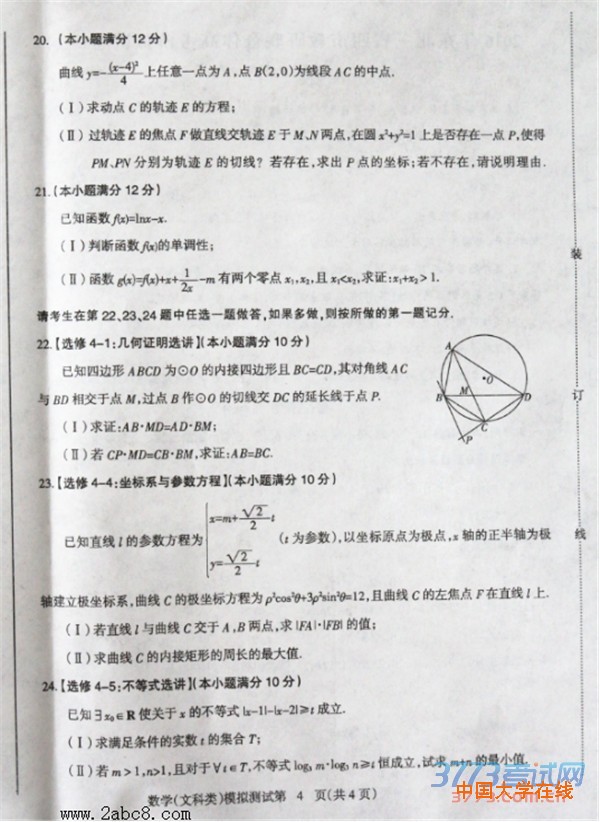 20.(本小题满分12分)
曲线 y=-(x-4)²/4 上任意一点为A,点B(2,0)为线段AC的中点.
(Ⅰ)求动点C的轨迹E的方程;
(Ⅱ)过轨迹E的焦点F做直线交轨迹E于M、N两点,在圆x²+y²=1上是否存在一点P,使得
PM、PN分别为轨迹E的切线?若存在,求出P点的坐标;若不存在,请说明理由.
21.(本小题满分12分)
已知函数f(x)=lnx-x.
(Ⅰ)判断函数f(x)的单调性;
(Ⅱ)函数g(x)=f(x)+x+1/2x-m有两个零点x₁,x₂,且x₁<x₂,求证:x₁+x₂>1.
请考生在第22、23、24题中任选一题做答,如果多做,则按所做的第一题记分.
22.【选修4-1:几何证明选讲】(本小题满分10分)
已知四边形ABCD为⊙O的内接四边形且BC=CD,其对角线AC
与BD相交于点M,过点B作⊙O的切线交DC的延长线于点P.
(Ⅰ)求证:AB·MD=AD·BM;
(Ⅱ)若CP·MD=CB·BM,求证:AB=BC.
A
O
B
M
D
C
P
23.【选修4-4:坐标系与参数方程】(本小题满分10分)
已知直线l的参数方程为 { x=m+√2/2 t  y=√2/2 t (t为参数),以坐标原点为极点,x轴的正半轴为极
轴建立极坐标系,曲线C的极坐标方程为ρ²cos²θ+3ρ²sin²θ=12,且曲线C的左焦点F在直线l上.
(Ⅰ)若直线l与曲线C交于A,B两点,求|FA|·|FB|的值;
(Ⅱ)求曲线C的内接矩形的周长的最大值.
24.【选修4-5:不等式选讲】(本小题满分10分)
已知∃x₀∈R使关于x的不等式|x-1|-|x-2|≥t成立.
(Ⅰ)求满足条件的实数t的集合T;
(Ⅱ)若m>1,n>1,且对于∀t∈T,不等式log₃m·log₃n≥t恒成立,试求m+n的最小值.
数学(文科类)模拟测试第 4 页(共4页)
装
订
线
3773考试网
中国大学在线
www.2abc8.com